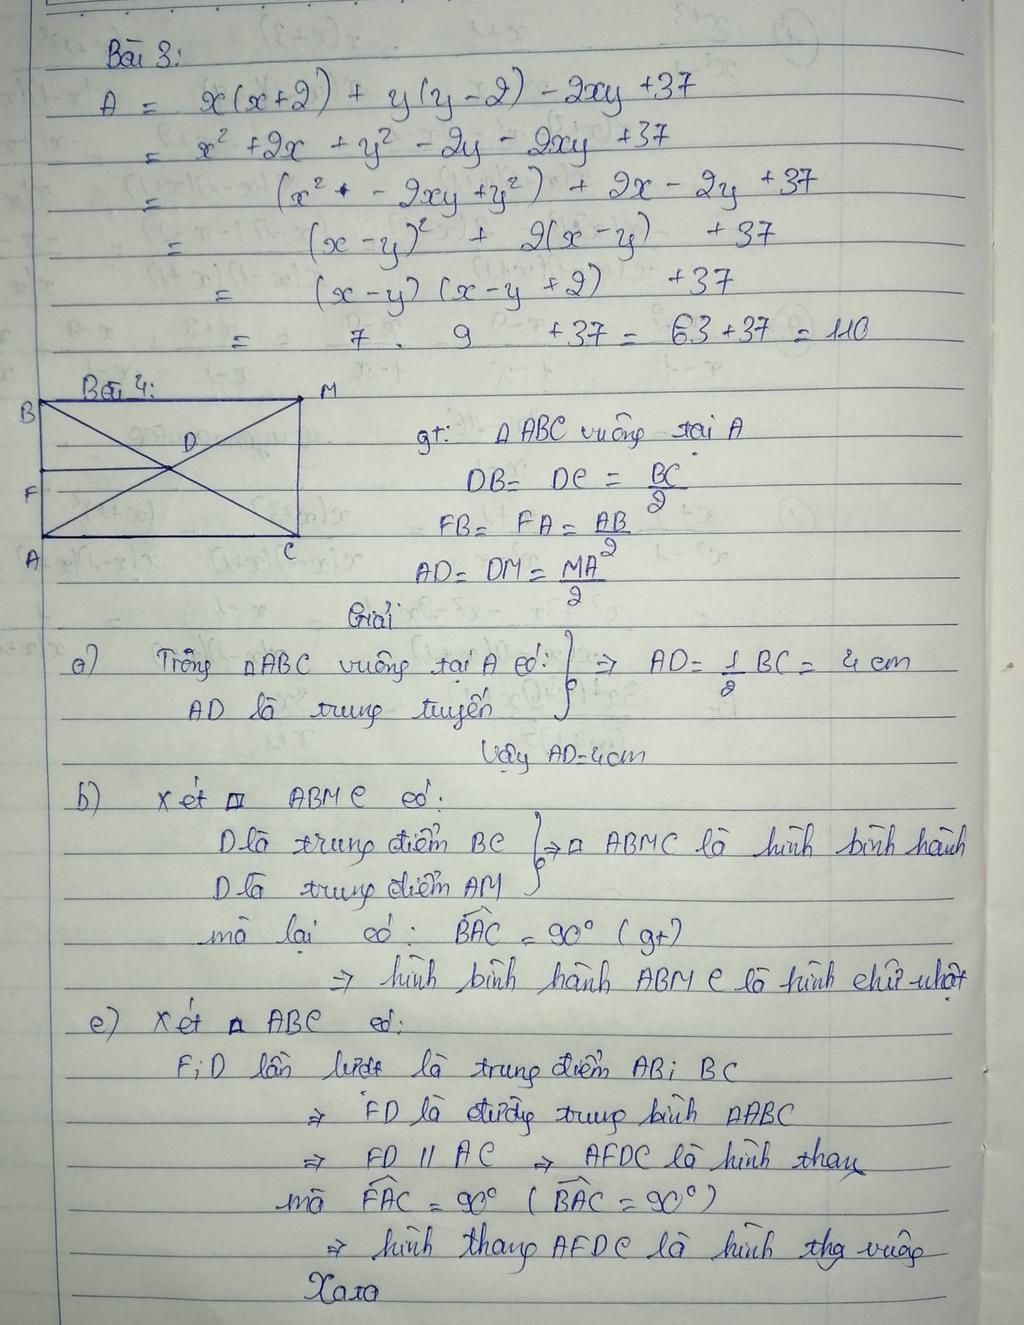 Bài 3:
A = x(x+2) + y(y-2) - 2xy +37
= x² +2x + y² - 2y - 2xy +37
= (x² - 2xy + y²) + 2x - 2y +37
= (x-y)² + 2(x-y) +37
= (x-y) (x-y+2) +37
= 7 . 9 +37 = 63 +37 = 110
Bài 4:
B
M
D
F
A
C
gt: Δ ABC vuông tại A
DB = DC = BC/2
FB = FA = AB/2
AD = DM = MA/2
Giải
a) Trong Δ ABC vuông tại A có: } ⇒ AD = 1/2 BC = 4 cm
AD là trung tuyến
Vậy AD=4cm
b) Xét □ ABMC có:
D là trung điểm BC } ⇒ □ ABMC là hình bình hành
D là trung điểm AM
mà lại có: BAC = 90° (gt)
⇒ hình bình hành ABMC là hình chữ nhật
c) Xét Δ ABC có:
F; D lần lượt là trung điểm AB; BC
⇒ FD là đường trung bình ΔABC
⇒ FD // AC ⇒ AFDC là hình thang
mà FAC = 90° (BAC = 90°)
⇒ hình thang AFDC là hình thg vuông